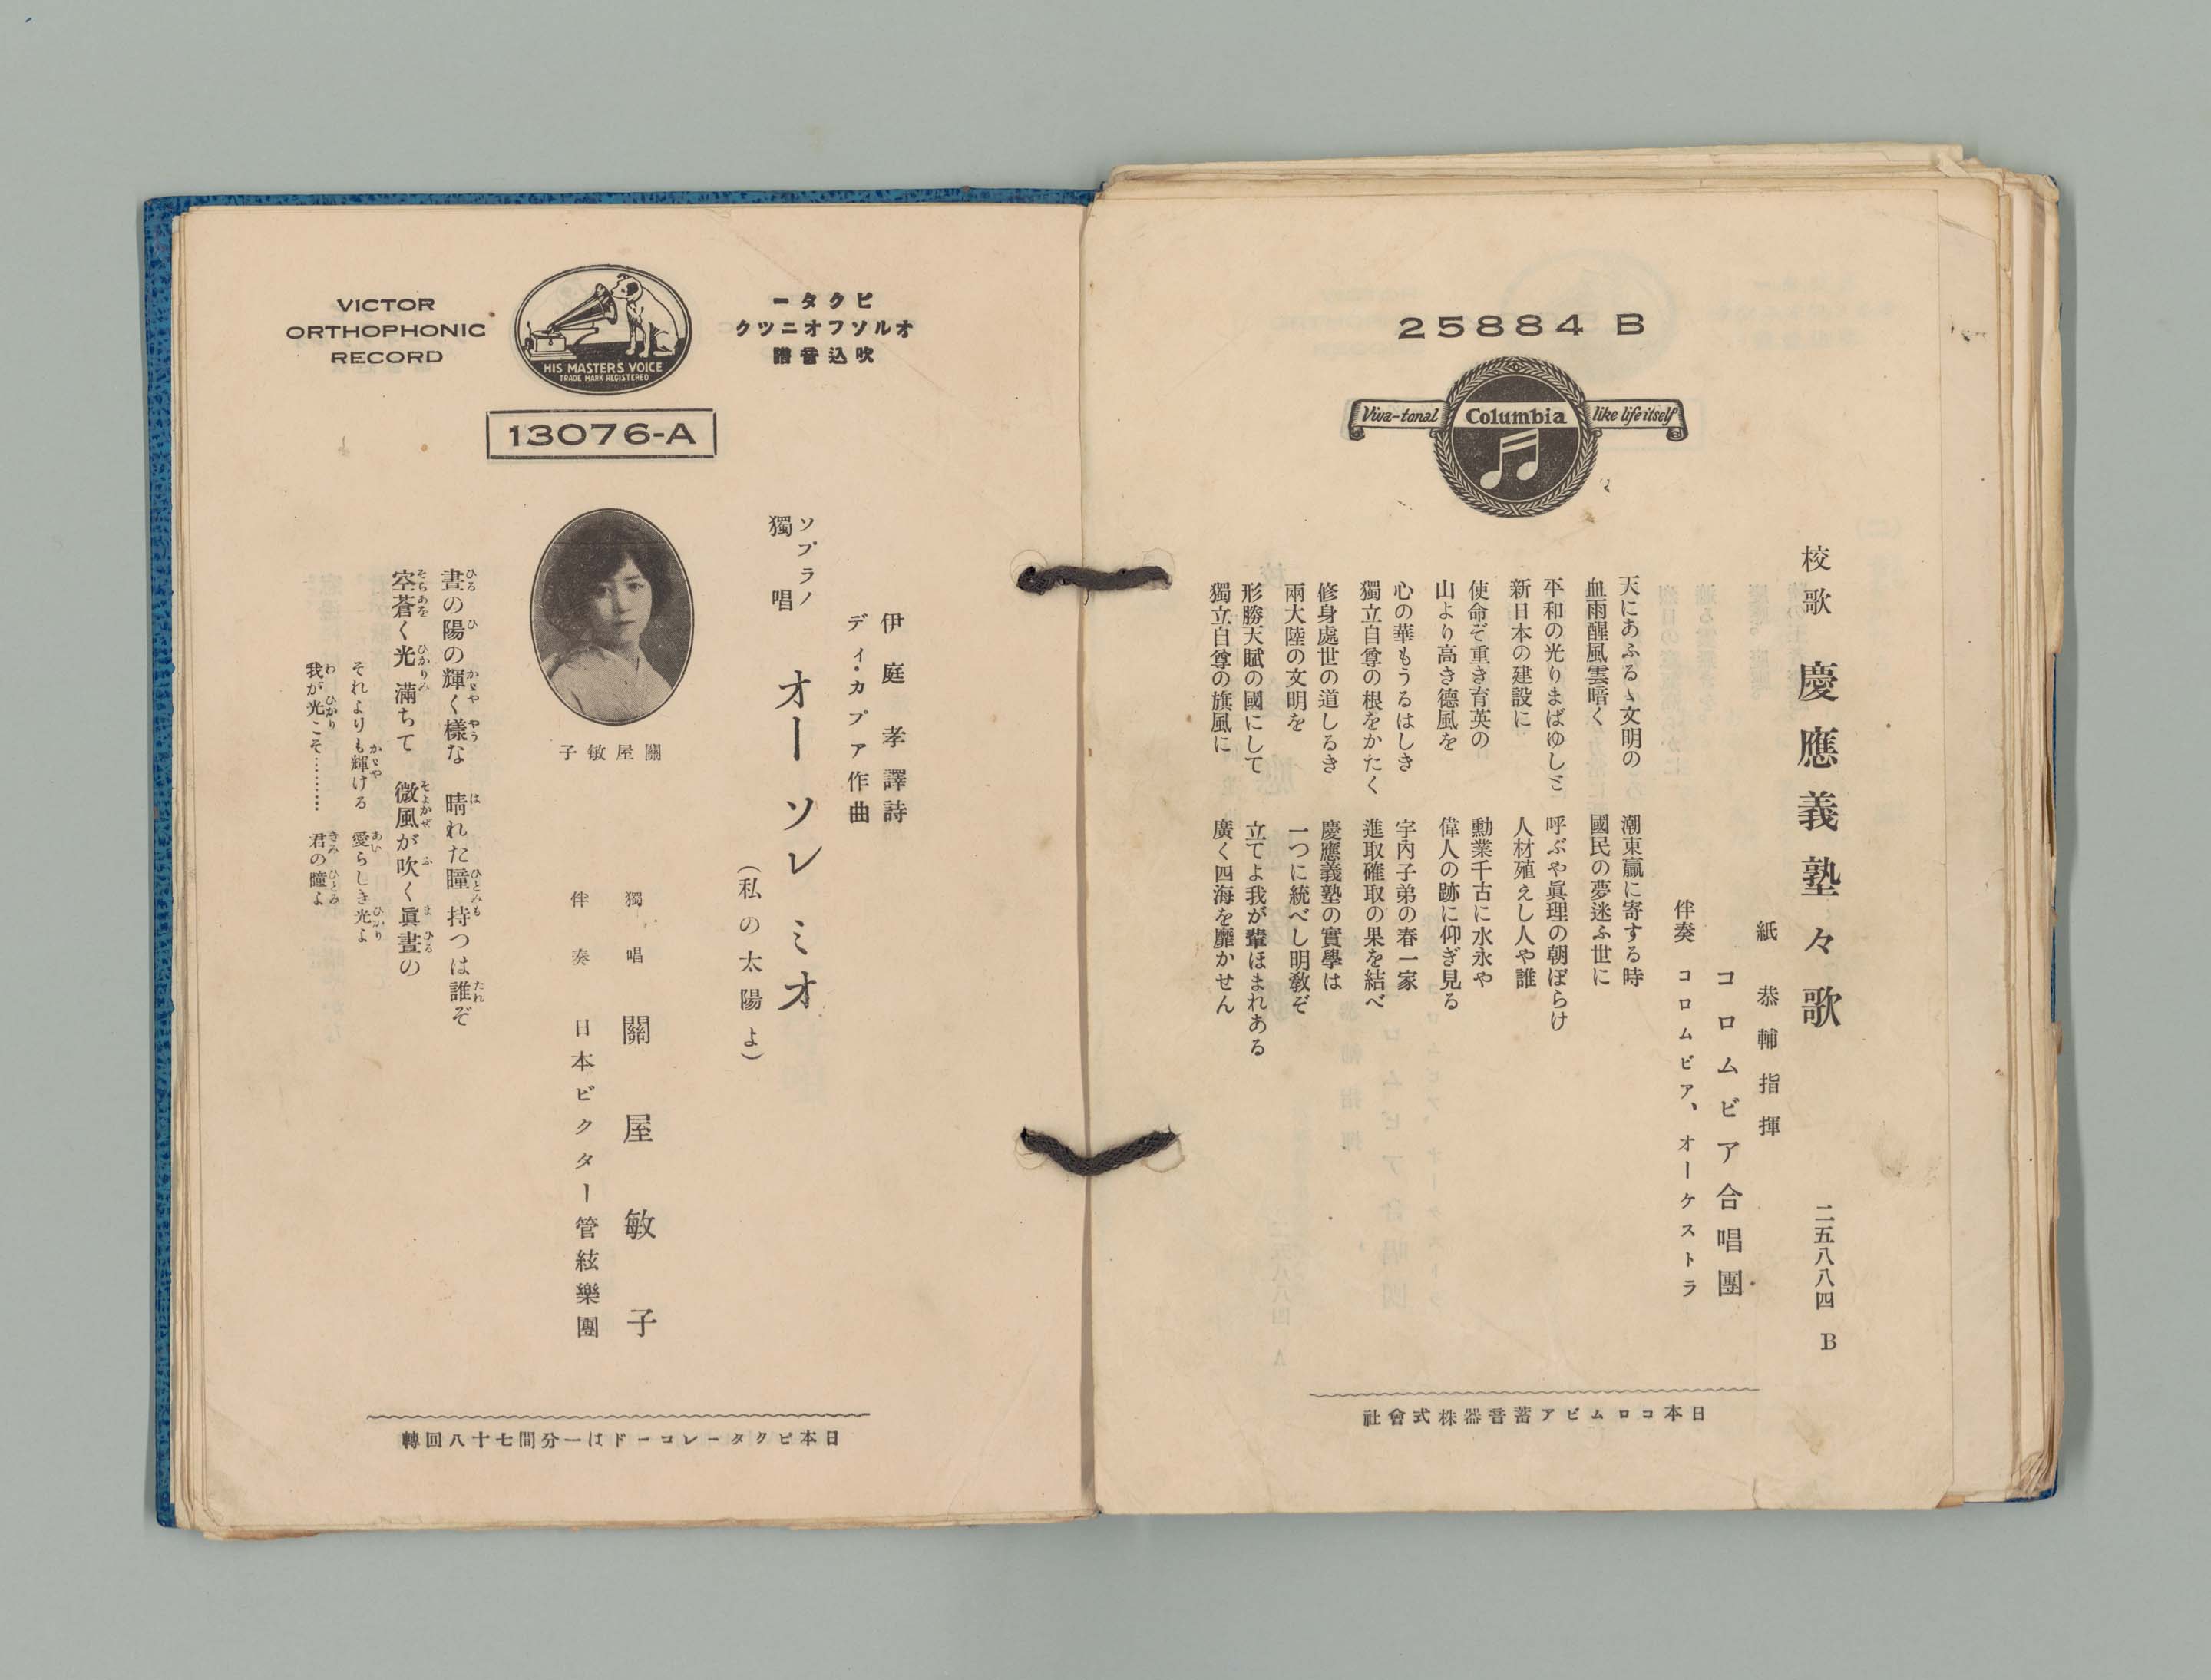 25884 B
Viva-tonal Columbia like life itself
校歌 慶應義塾々歌 二五八八四 B
紙恭輔指揮
コロムビア合唱團
伴奏 コロムビア、オーケストラ
天にあふるゝ文明の 潮東贏に寄する時
血雨醒風雲暗く 國民の夢迷ふ世に
平和の光りまばゆしミ 呼ぶや眞理の朝ぼらけ
新日本の建設に 人材殖えし人や誰
使命ぞ重き育英の 勳業千古に水永や
山より高き德風を 偉人の跡に仰ぎ見る
心の華もうるはしき 宇內子弟の春一家
獨立自尊の根をかたく 進取確取の果を結べ
修身處世の道しるき 慶應義塾の實學は
兩大陸の文明を 一つに統べし明敎ぞ
形勝天賦の國にして 立てよ我が輩ほまれある
獨立自尊の旗風に 廣く四海を靡かせん
日本コロムビア蓄音器株式會社
VICTOR
ORTHOPHONIC
RECORD
HIS MASTER'S VOICE
TRADE MARK REGISTERED
ビクター
オルソフオニツク
吹込音譜
13076-A
伊庭孝譯詩
ディ・カプア作曲
ソプラノ
獨唱 オーソレミオ
(私の太陽よ)
關屋敏子
獨唱 關屋敏子
伴奏 日本ビクター管絃樂團
晝の陽の輝く樣な 晴れた瞳持つは誰ぞ
空蒼く光滿ちて 微風が吹く眞晝の
それよりも輝ける 愛らしき光よ
我が光こそ……… 君の瞳よ
日本ビクターレコードは一分間七十八回轉